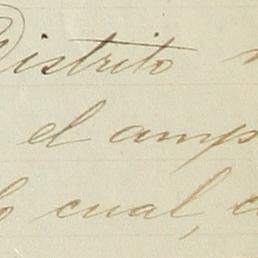 Distrito
el amp
cual,